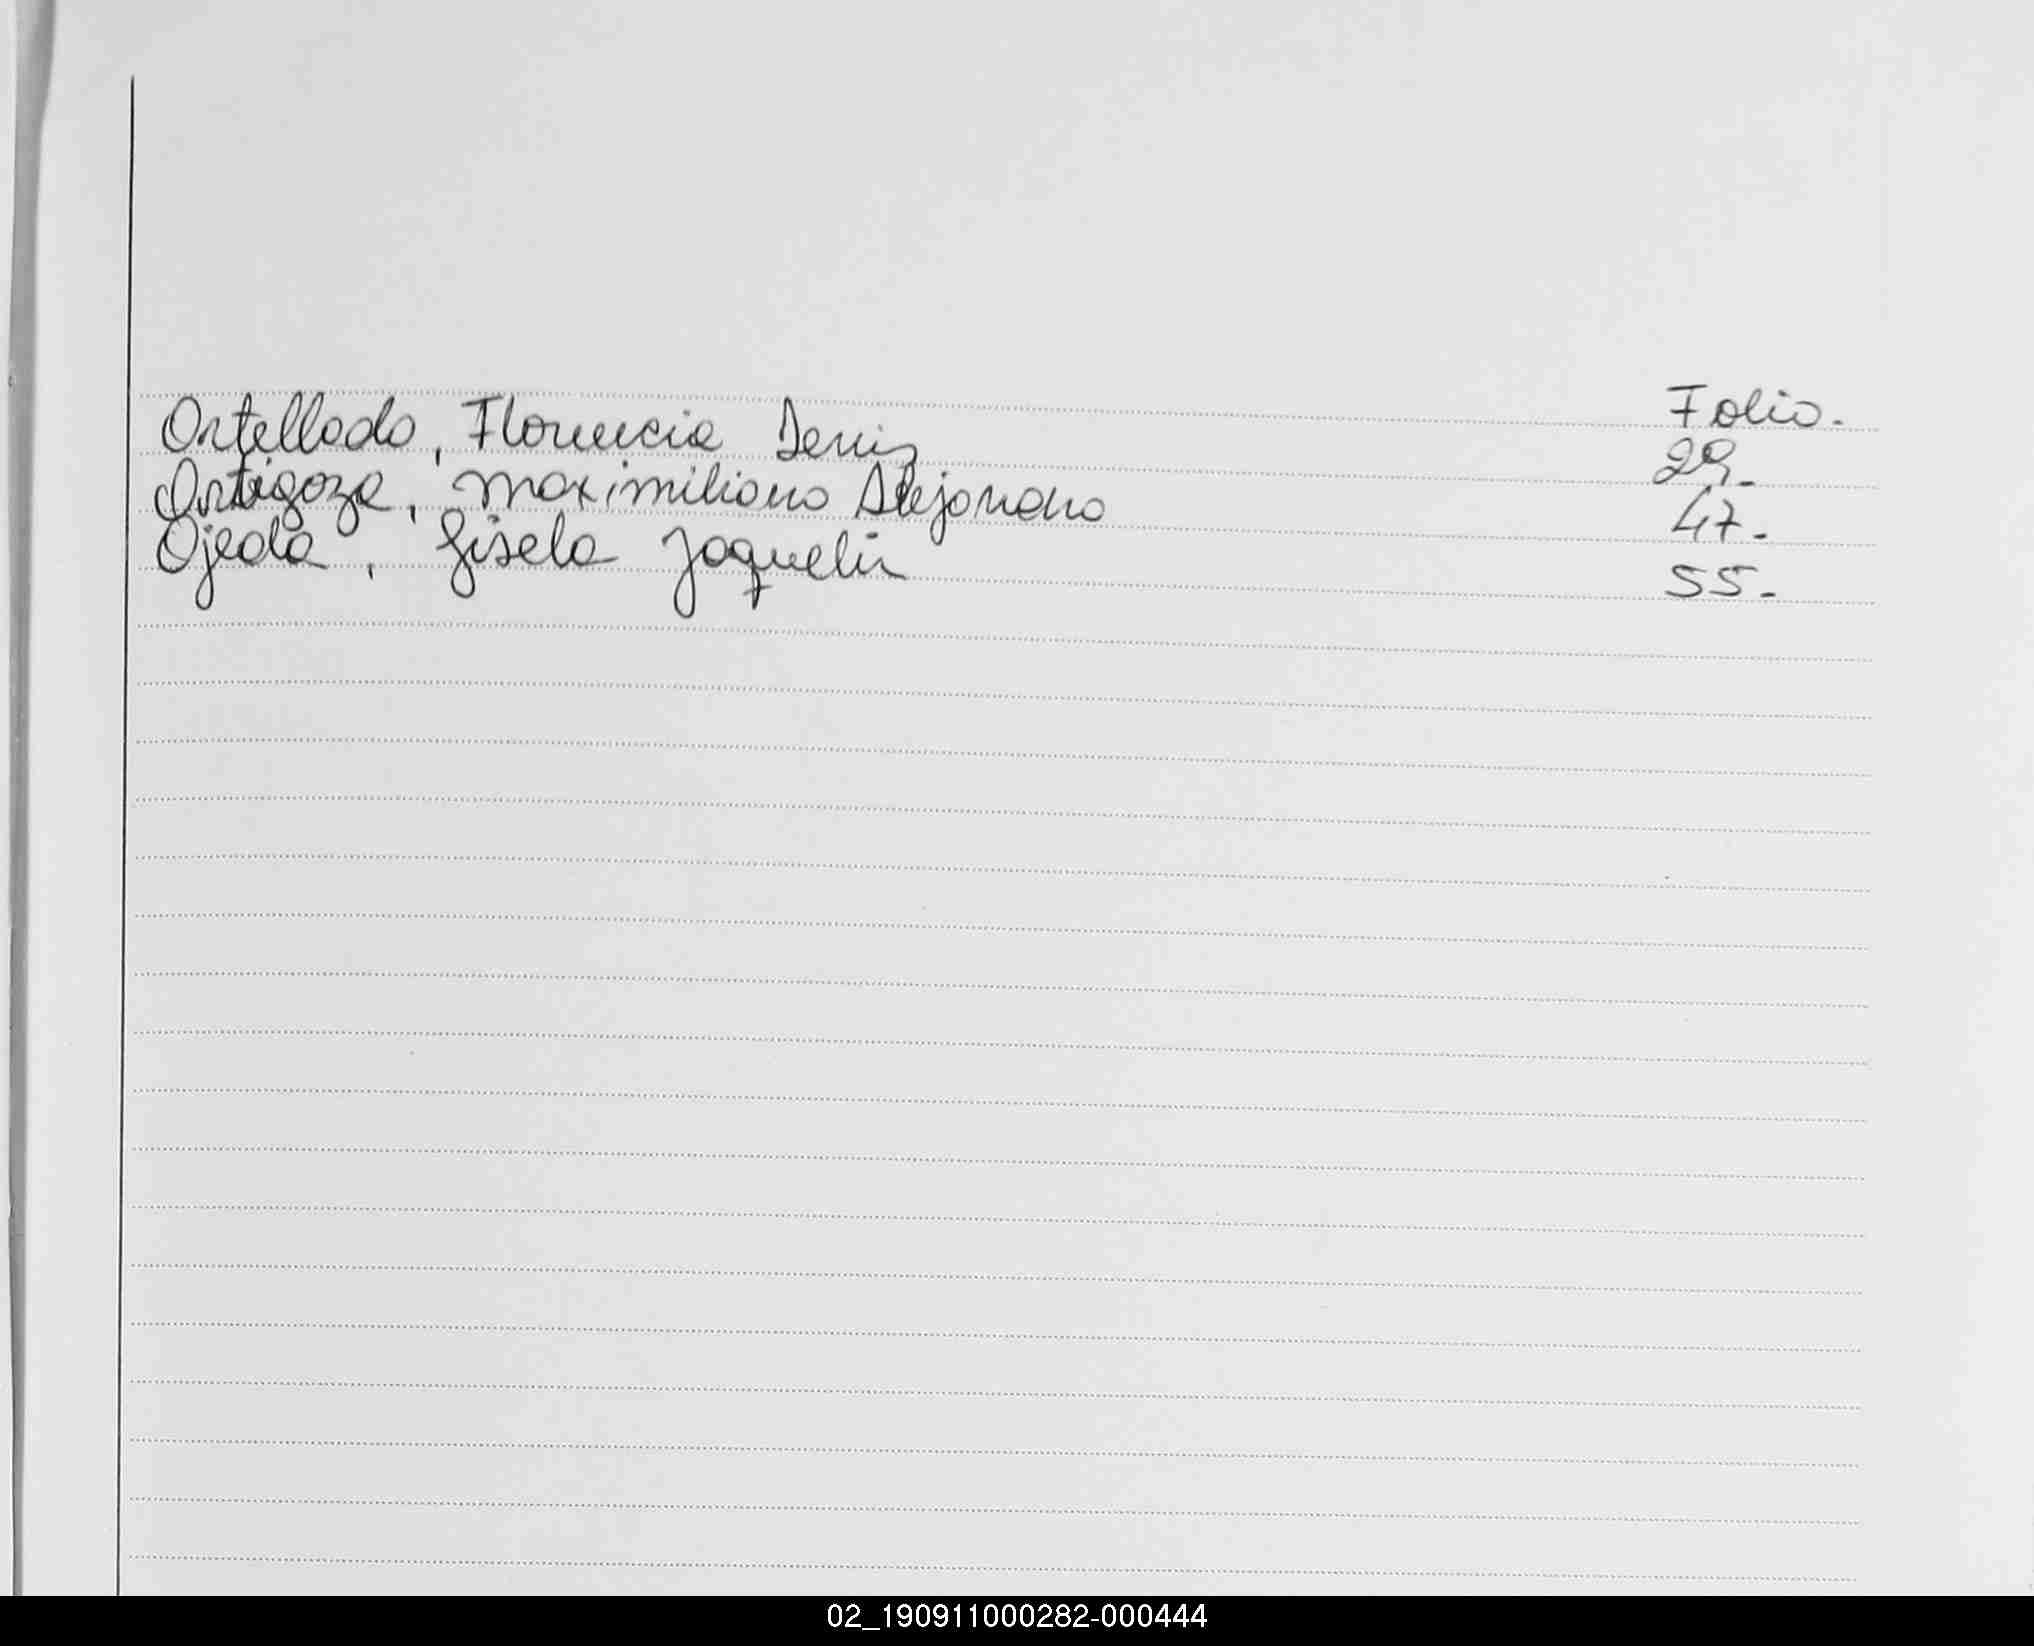 Folio.
Ortellado, Florencia Denis 29.
Ortigoza, Maximiliano Alejandro 47.
Ojeda, Gisela Jaquelin 55.
02_190911000282-000444